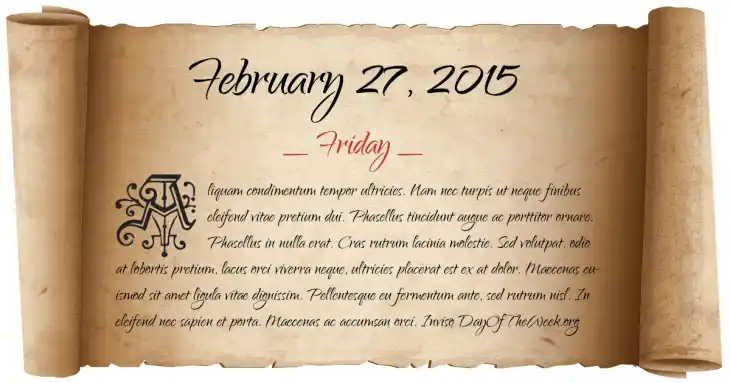 February 27, 2015
_ Friday _
Aliquam condimentum tempor ultricies. Nam nec turpis ut neque finibus
eleifend vitae pretium dui. Phasellus tincidunt augue ac porttitor ornare.
Phasellus in nulla erat. Cras rutrum lacinia molestie. Sed volutpat, odio
at lobortis pretium, lacus orci viverra neque, ultricies placerat est ex at dolor. Maecenas eu-
ismod sit amet ligula vitae dignissim. Pellentesque eu fermentum ante, sed rutrum nisl. In
eleifend nec sapien et porta. Maecenas ac accumsan orci. Inviso DayOfTheWeek.org